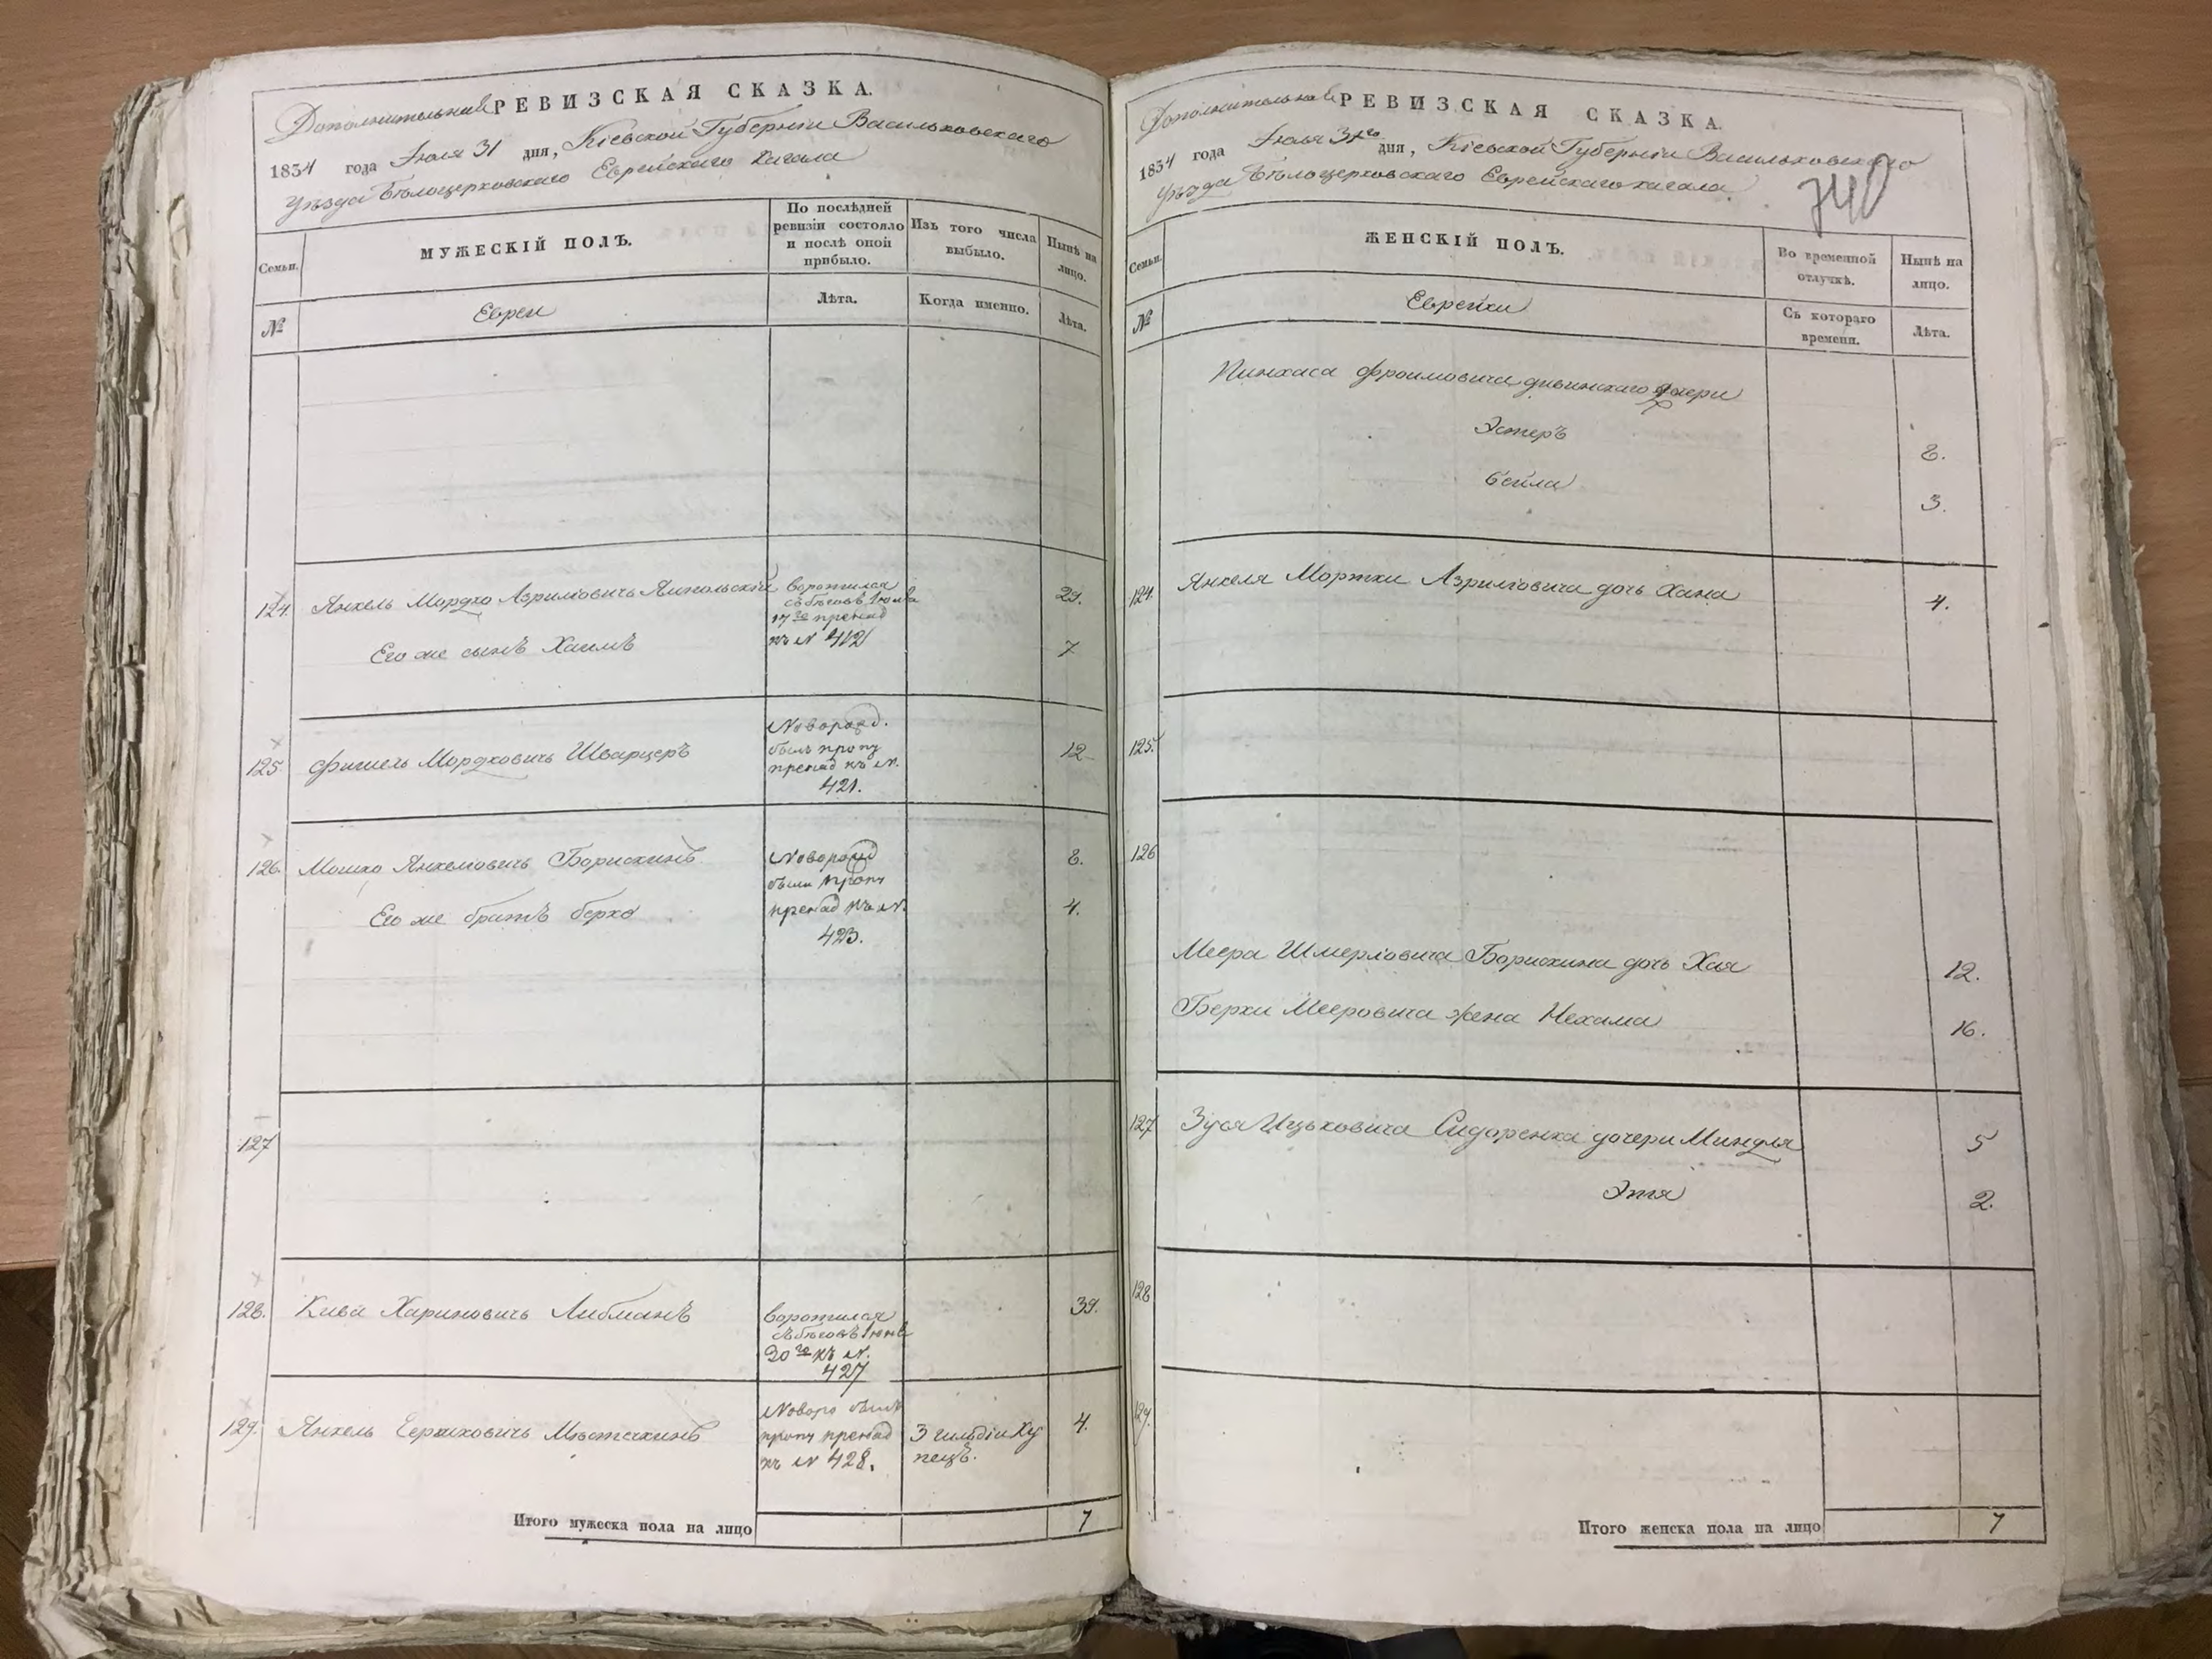 Дополнительная РЕВИЗСКАЯ СКАЗКА.
1834 года Июля 31 дня, Кіевской Губерніи Васильковскаго
Уѣзда Бѣлоцерковскаго Еврейскаго Кагала
Семьи.
МУЖЕСКІЙ ПОЛЪ.
По послѣдней
ревизіи состояло
и послѣ оной
прибыло.
Изъ того числа
выбыло.
Нынѣ на
лицо.
№
Евреи
Лѣта.
Когда именно.
Лѣта.
124. Янкель Мордко Азриліовичъ воротился 29.
съ бѣговъ
17го
къ № 412
Его же сынъ Хаимъ 7
125. Фишель Мордковичъ Шварцеръ Новорожд. 12
былъ пропу
къ №.
421.
126. Мошко Янкеліовичъ Борискинъ Новорожд 8.
были пропу
Его же братъ Берко къ №. 4.
423.
127
128. Кива Либманъ воротился 39.
съ бѣговъ
20го къ №.
427
129. Янкель Новоро былъ 4.
пропу 3 гильдіи Ку
къ № 428. пецъ.
Итого мужеска пола на лицо 7
Дополнительная РЕВИЗСКАЯ СКАЗКА.
1834 года Июля 31го дня, Кіевской Губерніи Васильковскаго
Уѣзда Бѣлоцерковскаго Еврейскаго кагала
740
Семьи.
ЖЕНСКІЙ ПОЛЪ.
Во временной
отлучкѣ.
Нынѣ на
лицо.
№
Еврейки
Съ котораго
времени.
Лѣта.
Пинхаса Фроимовича дочери
Эстеръ 8.
Бейла 3.
124. Янкеля Мортки Азриліовича дочь Хана 4.
125.
126
Меера Шмерліовича Борискина дочь Хая 12.
Берки Мееровича жена Нехама 16.
127 Зуся Ицьковича Сидоренка дочери Миндля 5
Этя 2.
128
129.
Итого женска пола на лицо 7